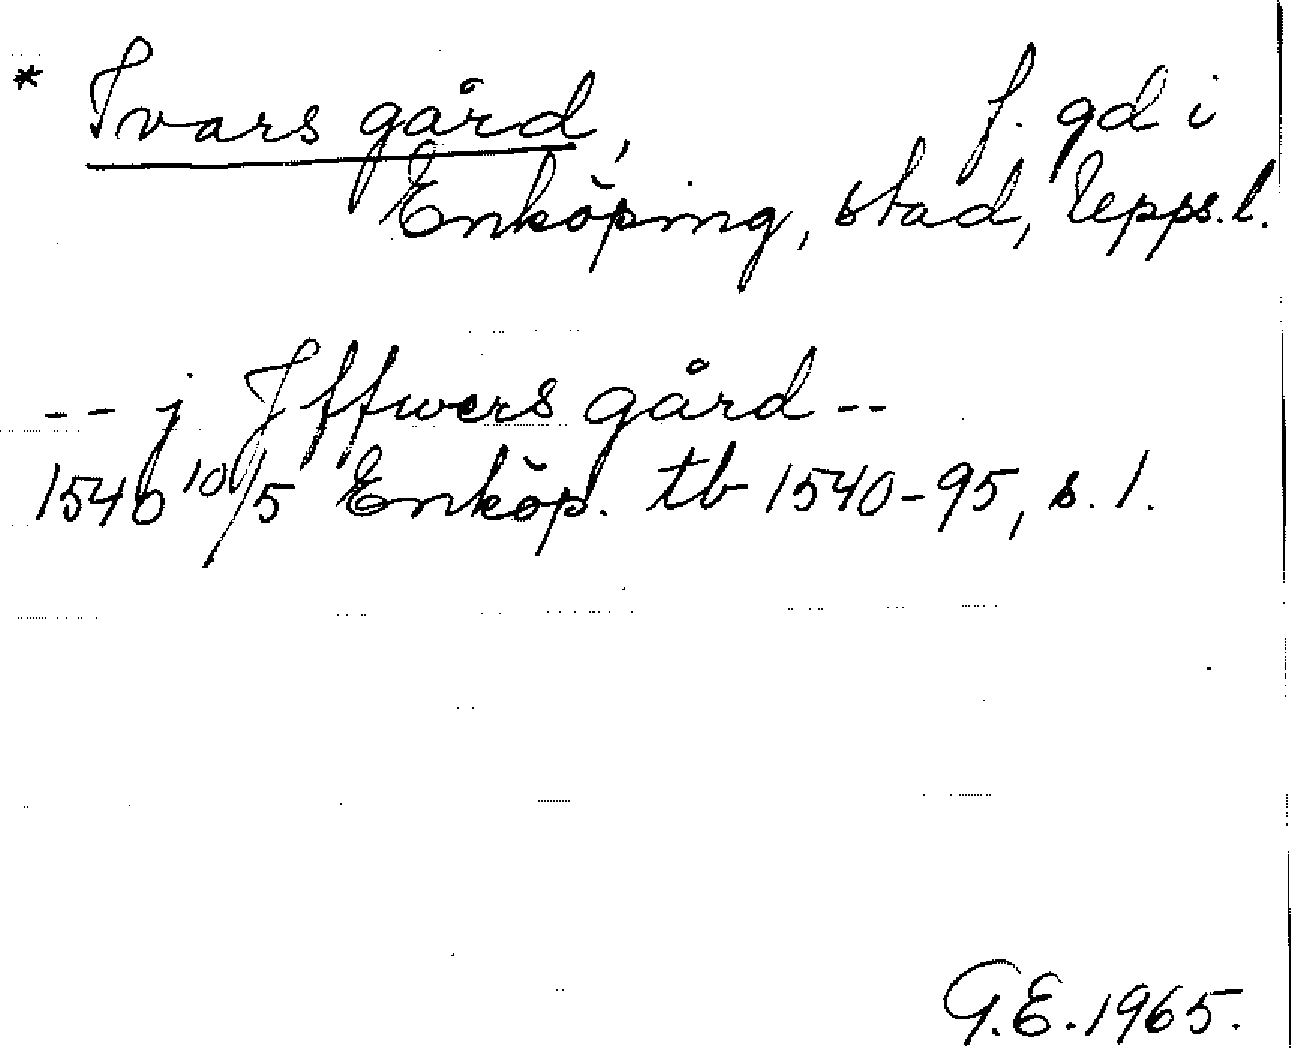 * Ivars gård, f. gd i
Enköping, stad, Upps.l.
-- j Jffwers gård --
1540 10/5 Enköp. tb 1540-95, s. 1.
G.E. 1965.